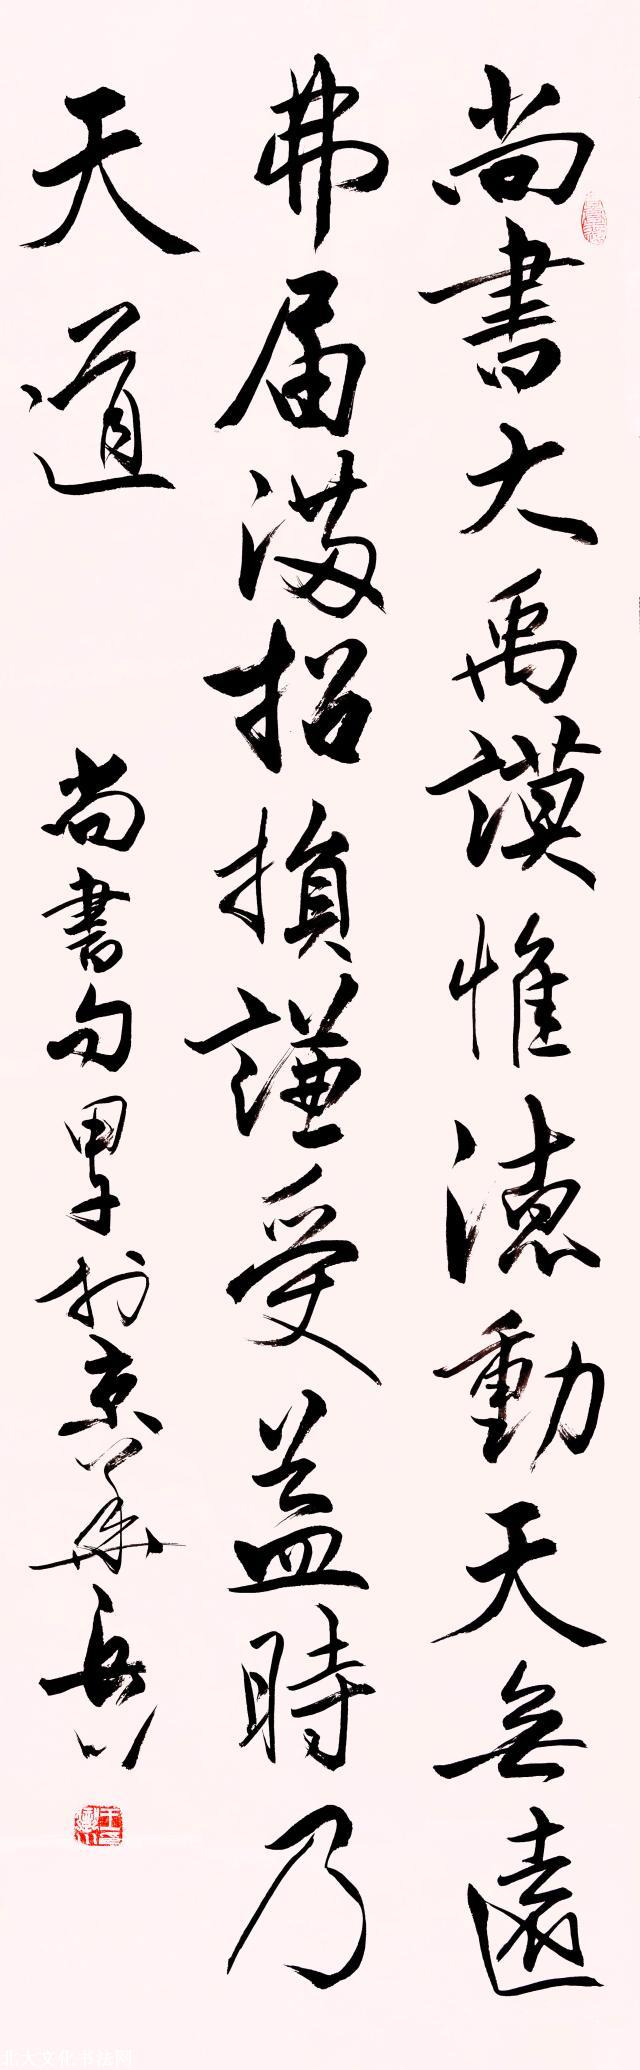 尚書大禹謨惟德動天無遠
弗届滿招損謙受益時乃
天道
尚書句甲子於京華
北大文化书法网